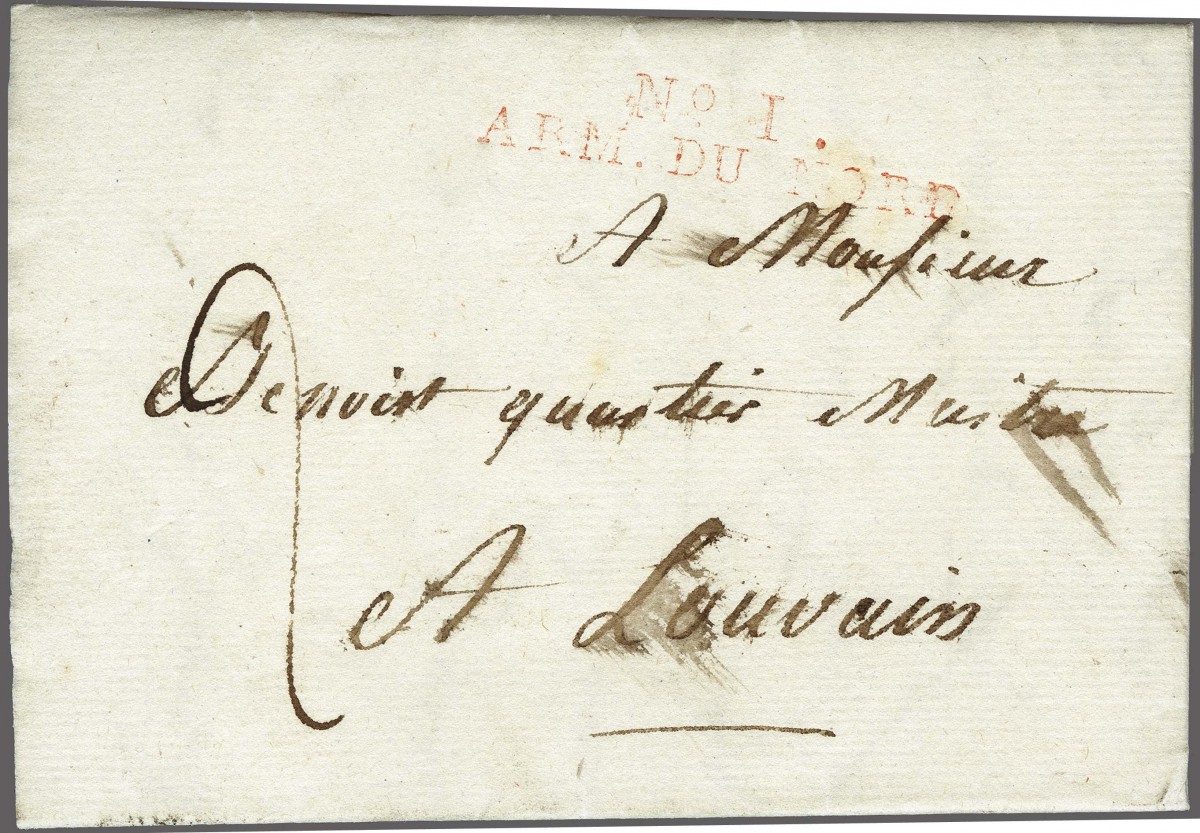 Nº I.
ARM. DU NORD
A Monsieur
Benoist quartier Maitre
A Louvain
2